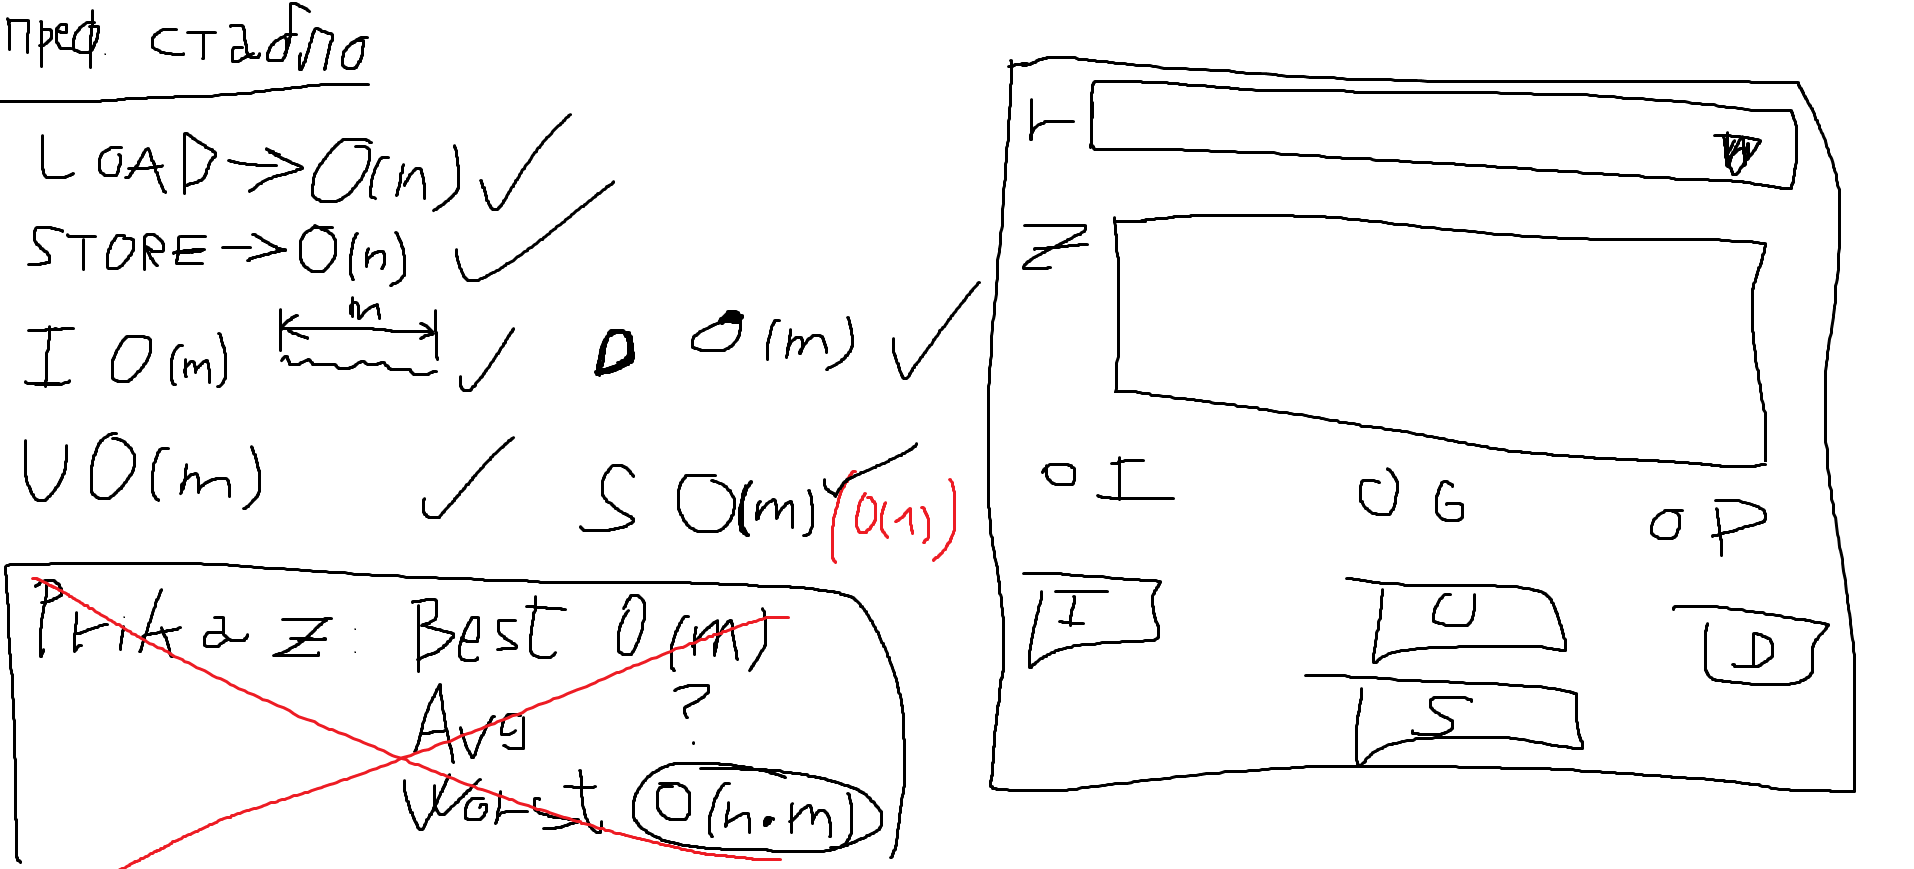 преф. стабло
LOAD → O(n) ✓
STORE → O(n) ✓
m
I O(m) ✓
D O(m) ✓
U O(m) ✓
S O(m) ✓ (O(1))
Prikaz: Best O(m)
Avg ?
Worst O(n·m)
Z
I
G
P
I
U
D
S